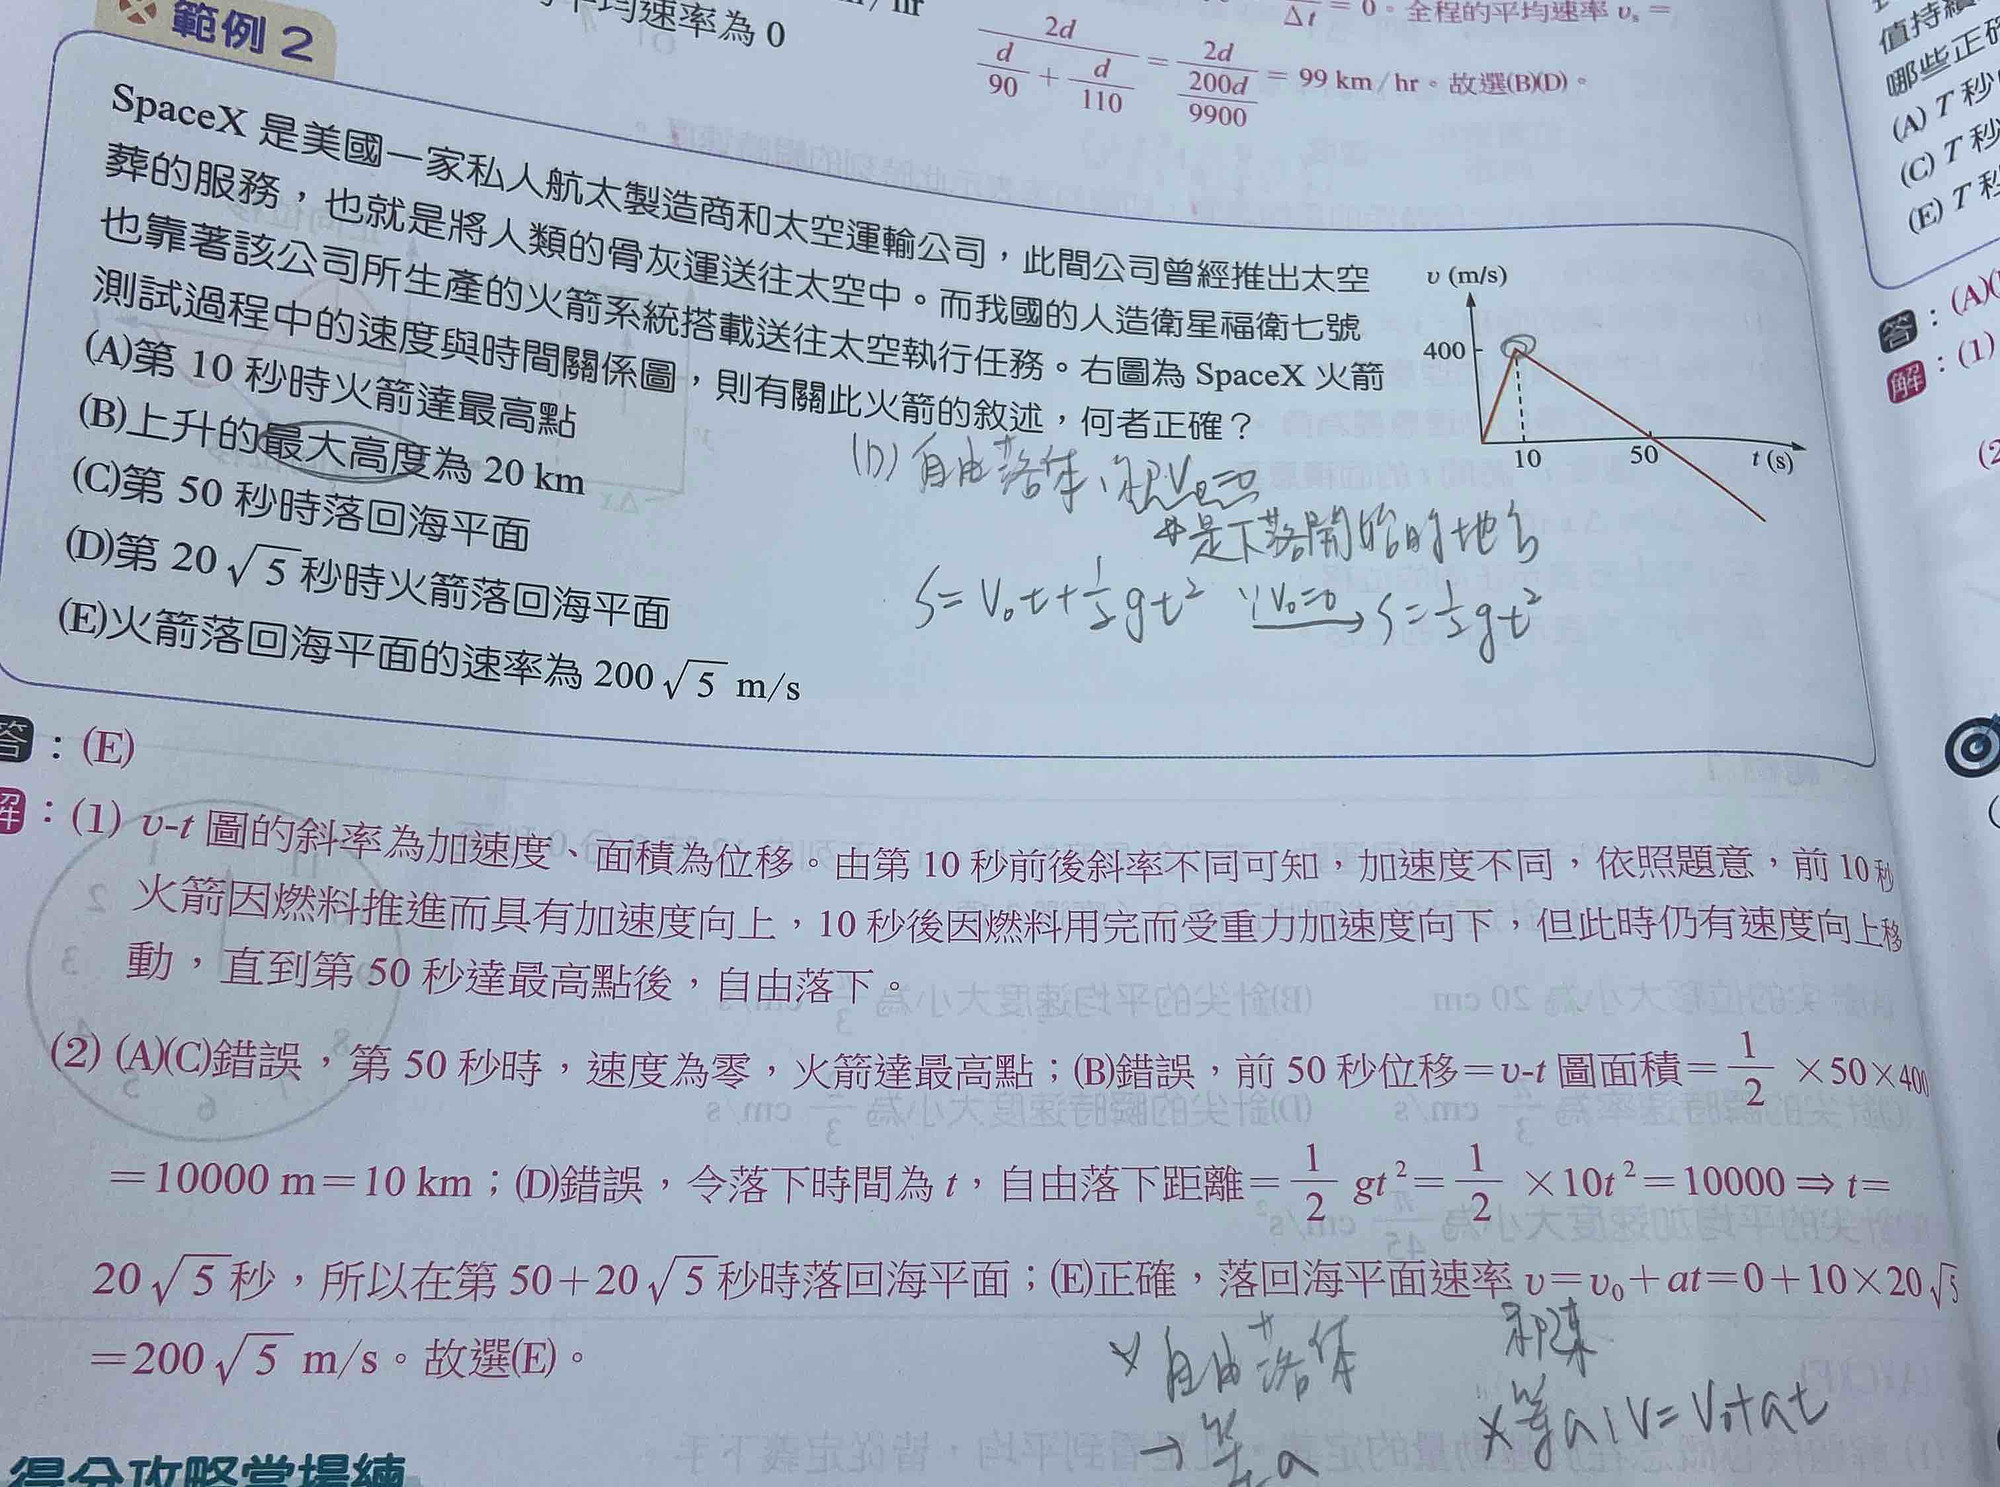 範例 2
均速率為 0
2d / (d/90 + d/110) = 2d / (200d/9900) = 99 km/hr。故選(B)(D)。
Δt = 0。全程的平均速率 υₛ =
SpaceX 是美國一家私人航太製造商和太空運輸公司，此間公司曾經推出太空
葬的服務，也就是將人類的骨灰運送往太空中。而我國的人造衛星福衛七號
也靠著該公司所生產的火箭系統搭載送往太空執行任務。右圖為 SpaceX 火箭
測試過程中的速度與時間關係圖，則有關此火箭的敘述，何者正確？
(A)第 10 秒時火箭達最高點
(B)上升的最大高度為 20 km
(C)第 50 秒時落回海平面
(D)第 20√5 秒時火箭落回海平面
(E)火箭落回海平面的速率為 200√5 m/s
υ (m/s)
400
10
50
t (s)
(D) 自由落体，初V₀=0
是下落開始的地方
S=V₀t+½gt² ∵V₀=0 → S=½gt²
答：(E)
解：(1) υ-t 圖的斜率為加速度、面積為位移。由第 10 秒前後斜率不同可知，加速度不同，依照題意，前 10 秒
火箭因燃料推進而具有加速度向上，10 秒後因燃料用完而受重力加速度向下，但此時仍有速度向上移
動，直到第 50 秒達最高點後，自由落下。
(2) (A)(C)錯誤，第 50 秒時，速度為零，火箭達最高點；(B)錯誤，前 50 秒位移＝υ-t 圖面積＝1/2 ×50×400
＝10000 m＝10 km；(D)錯誤，令落下時間為 t，自由落下距離＝1/2 gt²＝1/2 ×10t²＝10000⇒t＝
20√5 秒，所以在第 50＋20√5 秒時落回海平面；(E)正確，落回海平面速率 υ＝υ₀＋at＝0＋10×20√5
＝200√5 m/s。故選(E)。
自由落体
→等a
初速
等a，V=V₀+at
得分攻略當場練
值持續
哪些正確
(A) T 秒
(C) T 秒
(E) T 秒
答：(A)
解：(1)
(2